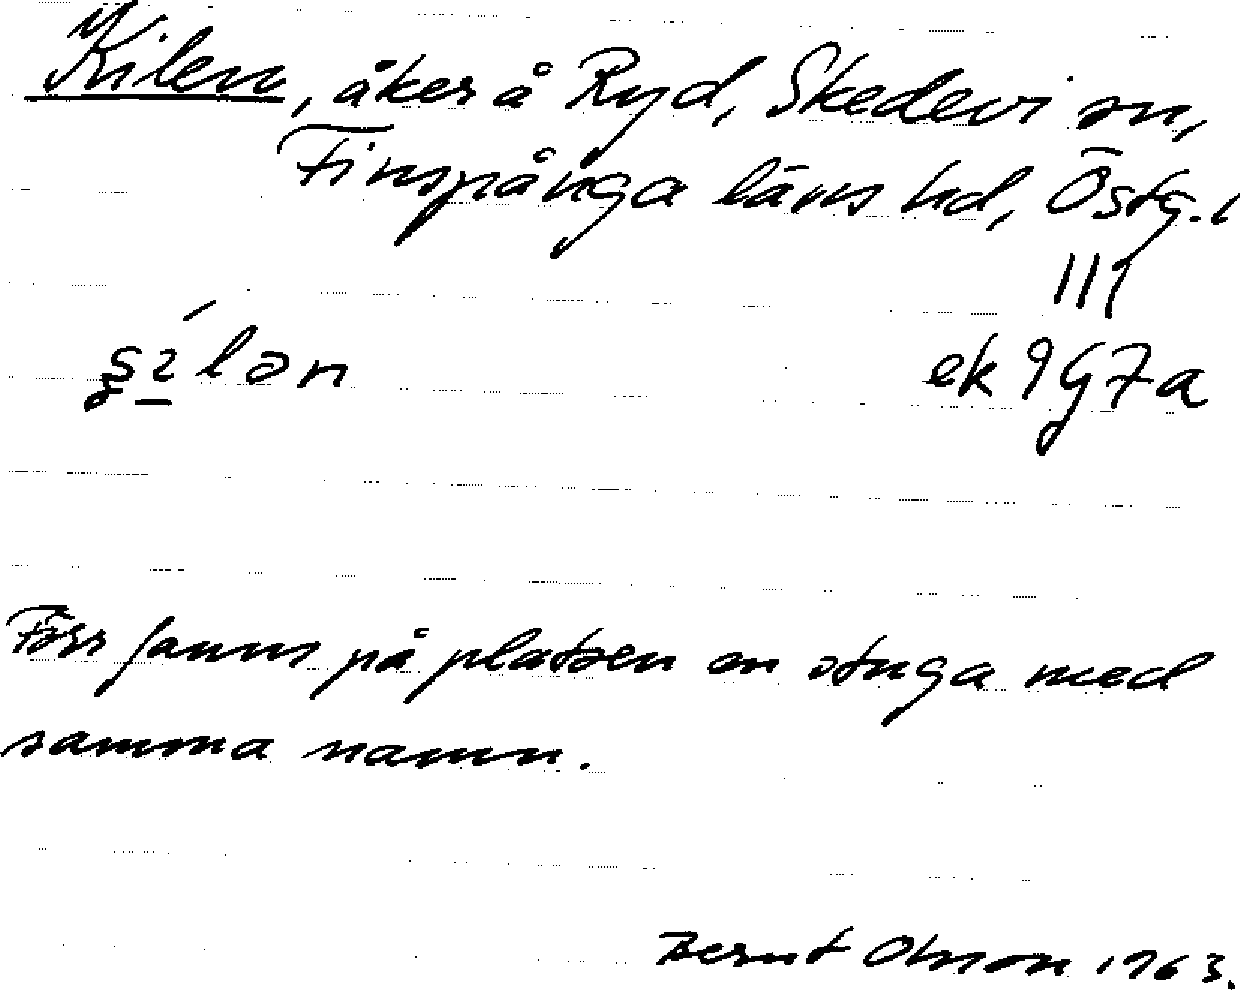 Kilen, åker å Ryd, Skedevi sn,
Finspånga läns hd, Östg. l
111
ek 9 G 7 a
Förr fanns på platsen en stuga med
samma namn.
Bernt Olsson 1963.